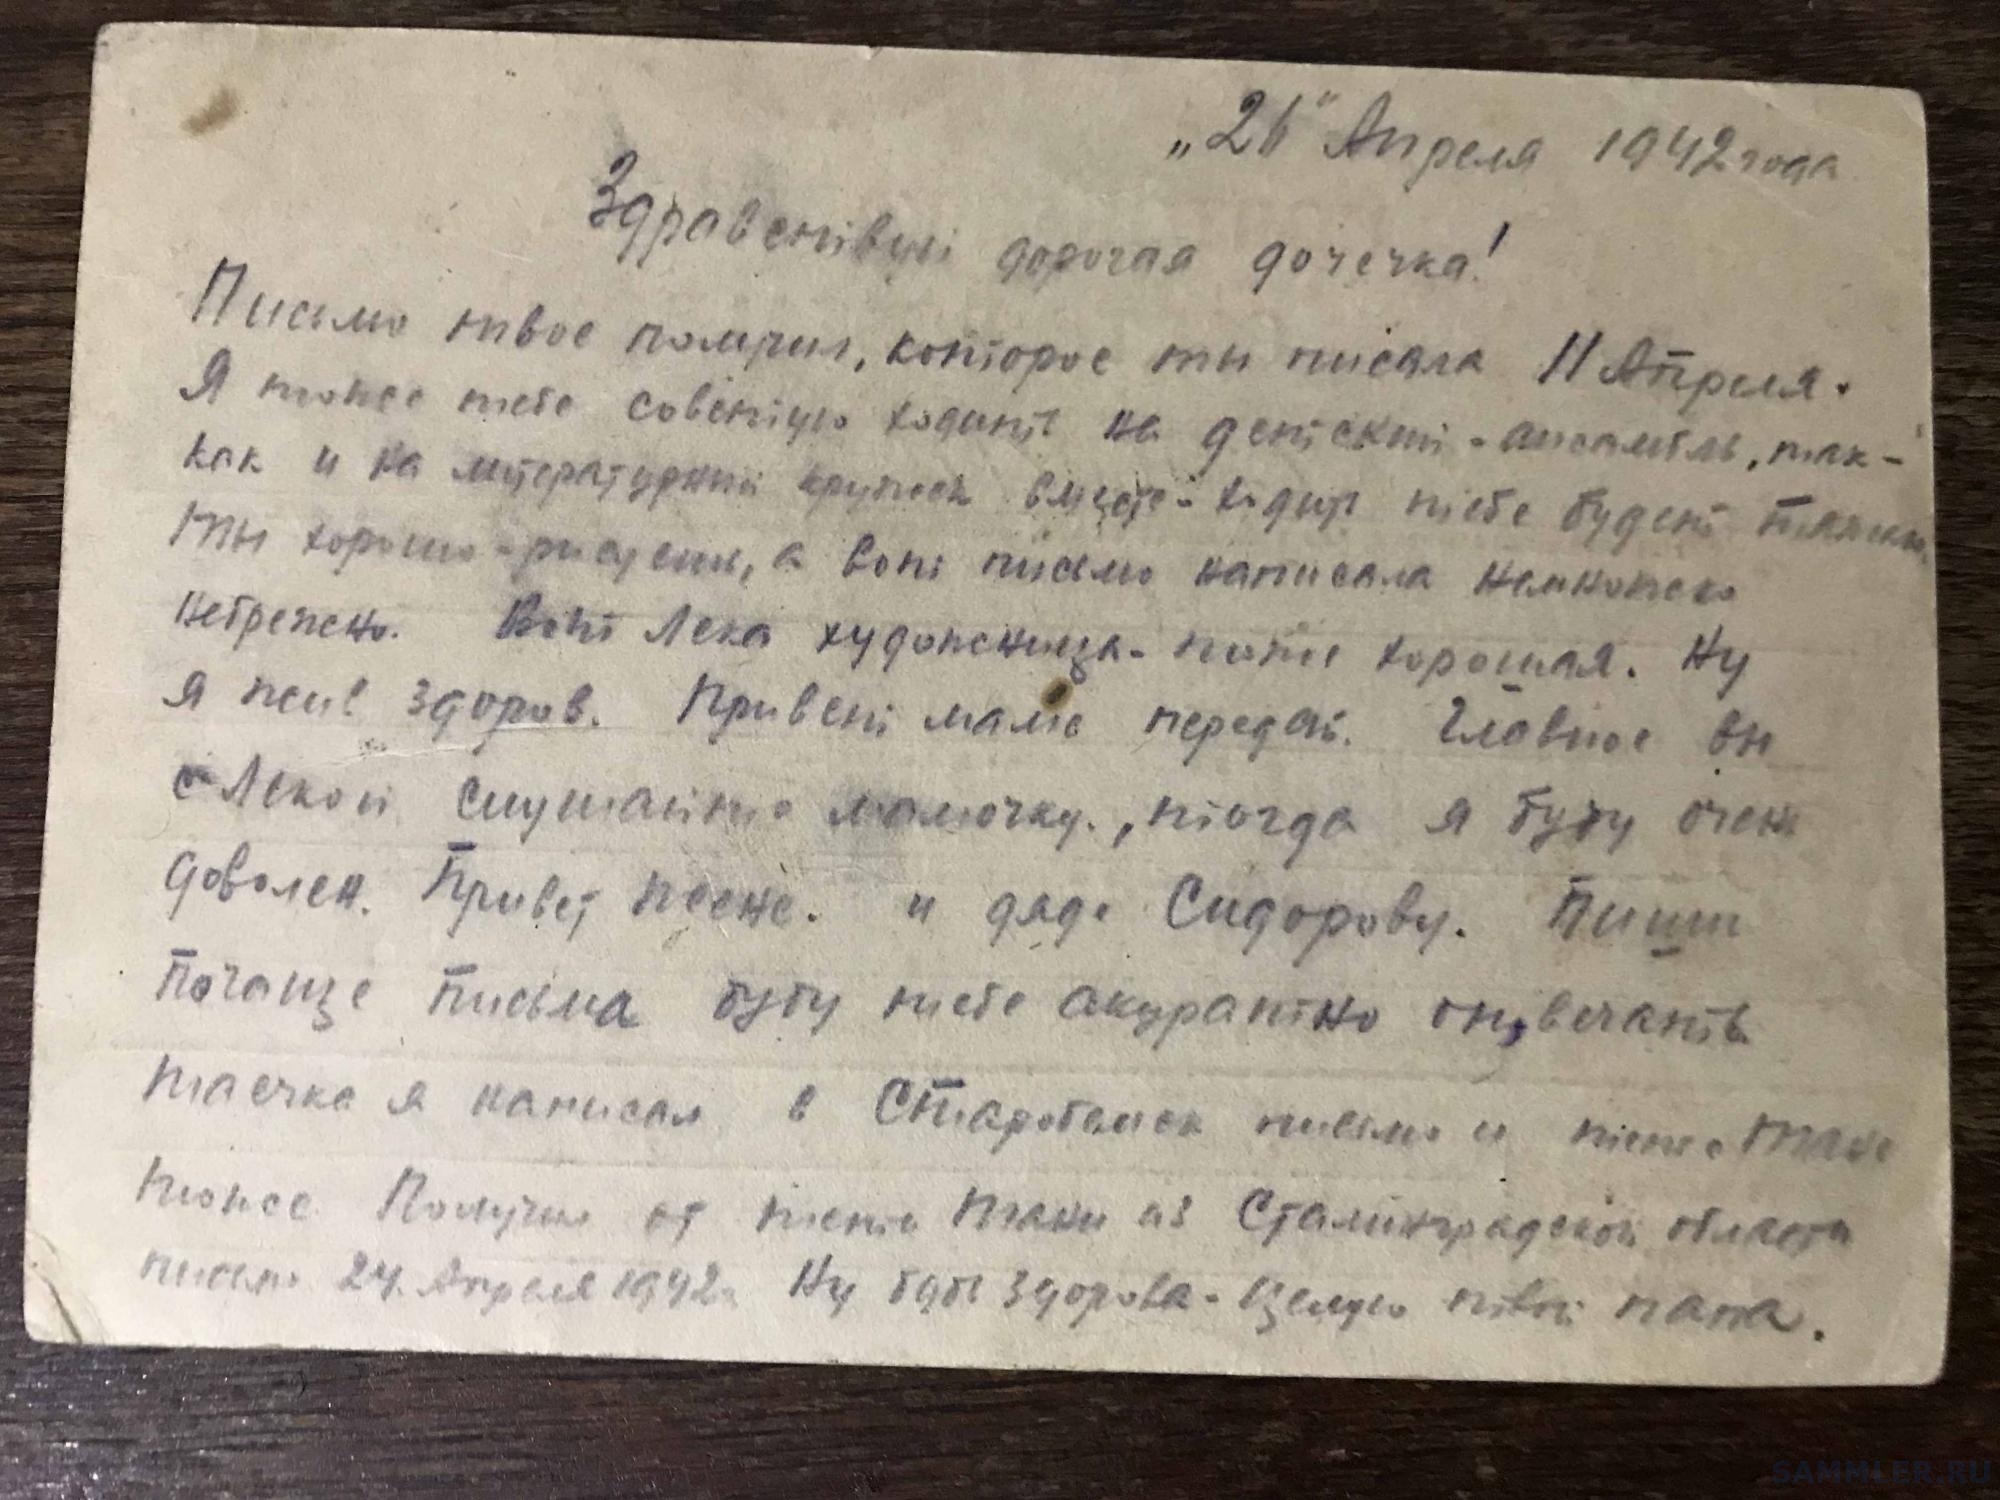 „26" Апреля 1942 года
Здравствуй дорогая дочечка!
Письмо твое получил, которое ты писала 11 Апреля.
Я тоже тебе советую ходить на детский - ансамбль, так-
как и на литературний кружок вместе - ходить тебе будет тяжело.
Ты хорошо - рисуеш, а вот письмо написала немножко
небрежно. Вот Лека художница - тоже хорошая. Ну
я жив здоров. Привет маме передай. Главное вы
с Лекой слушайте мамочку, тогда я буду очен
доволен. Привет Жене. и дяде Сидорову. Пиши
почаще письма буду тебе акуратно отвечать
Таечка я написал в Старобельск письмо и тете Тане
тоже Получил от тети Тани из Сталинградской области
письмо 24 Апреля 1942г Ну будь здорова - Целую твой папа.
SAMMLER.RU